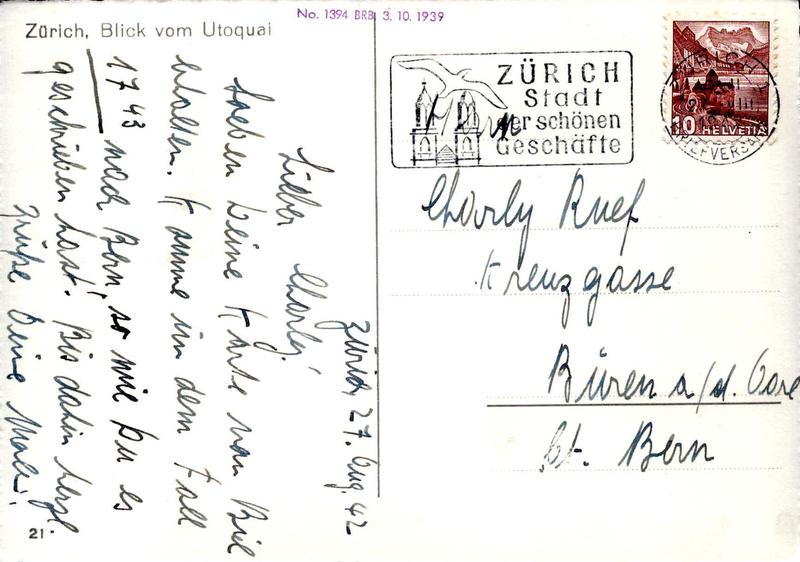 Zürich, Blick vom Utoquai
No. 1394 BRB 3. 10. 1939
ZÜRICH
Stadt
der schönen
Geschäfte
10 HELVETIA
BRIEFVERSAND
Zürich 27. Aug. 42
Lieber Charly!
Soeben Deine Karte von Biel
erhalten. Komme in dem Fall
17 43 nach Bern, so wie Du es
geschrieben hast. Bis dahin herzl
Grüße Deine
Charly Ruef
Kreuzgasse
Büren a/d. Aare
Ct. Bern
21